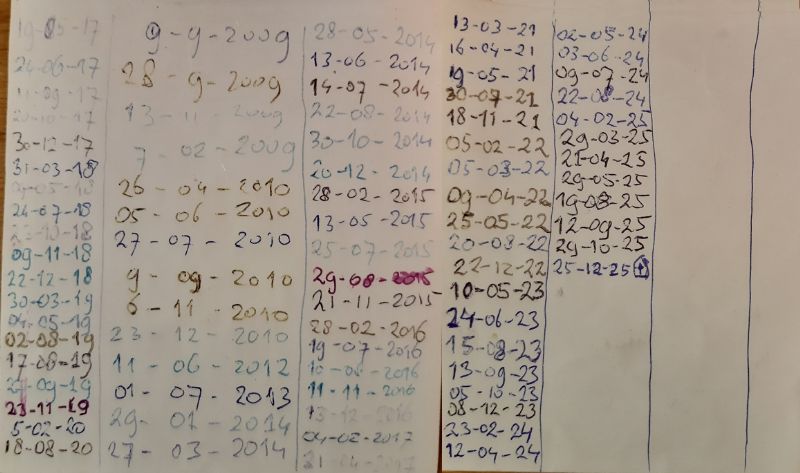 9-9-2009
28-9-2009
13-11-2009
7-02-2009
26-04-2010
05-06-2010
27-07-2010
9-09-2010
6-11-2010
23-12-2010
11-06-2012
01-07-2013
29-01-2014
27-03-2014
28-05-2014
13-06-2014
14-07-2014
22-08-2014
30-10-2014
20-12-2014
28-02-2015
13-05-2015
25-07-2015
29-08-2015
21-11-2015
28-02-2016
19-07-2016
11-11-2016
13-12-2016
04-02-2017
21-04-2017
19-05-17
24-06-17
30-12-17
31-03-18
24-07-18
23-10-18
09-11-18
22-12-18
30-03-19
04-05-19
02-08-19
17-08-19
27-09-19
23-11-19
5-02-20
18-08-20
13-03-21
16-04-21
19-05-21
30-07-21
18-11-21
05-02-22
05-03-22
09-04-22
25-05-22
20-08-22
22-12-22
10-05-23
24-06-23
15-08-23
13-09-23
05-10-23
08-12-23
23-02-24
12-04-24
02-05-24
03-06-24
09-07-24
22-08-24
04-02-25
29-03-25
21-04-25
29-05-25
19-08-25
12-09-25
29-10-25
25-12-25